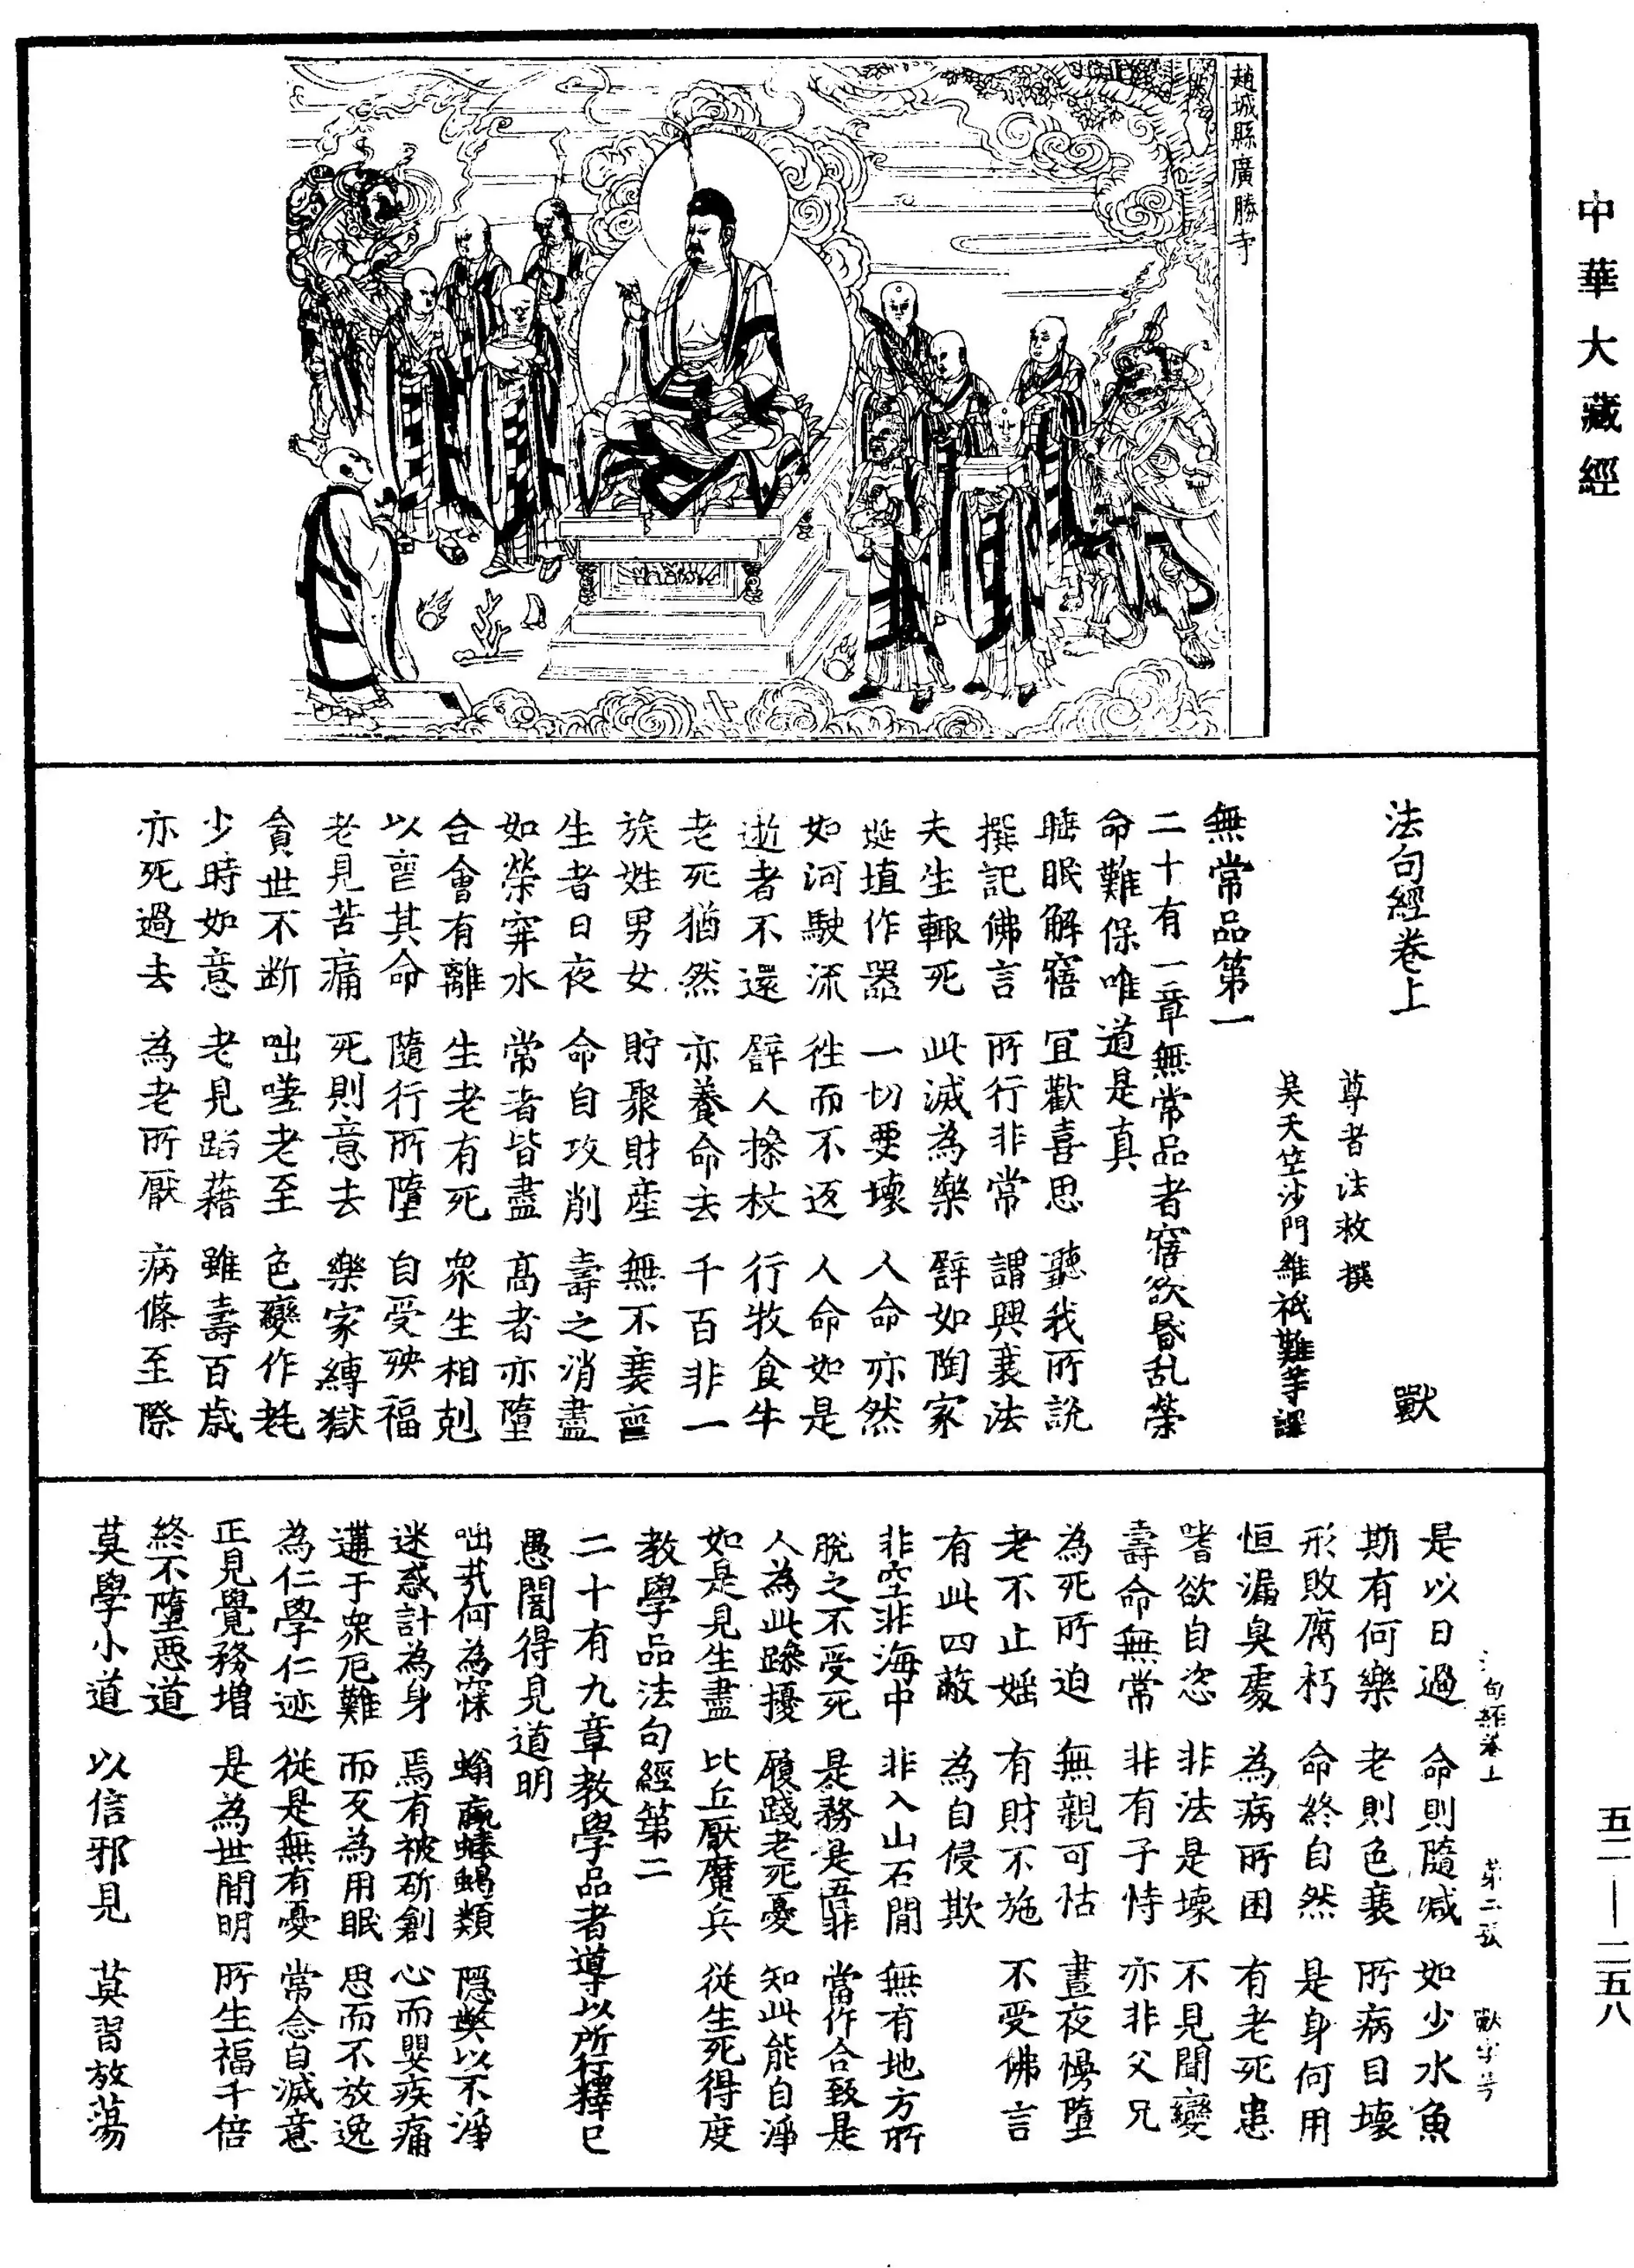 中華大藏經
趙城縣廣勝寺
法句經卷上 獸
尊者法救撰
吴天竺沙門維祇難等譯
無常品第一
二十有一章無常品者寤欲昬乱榮
命難保唯道是真
睡眠解寤 冝歡喜思 聽我所說
撰記佛言 所行非常 謂興衰法
夫生輙死 此滅為樂 譬如陶家
埏埴作器 一切要壞 人命亦然
如河駛流 徃而不返 人命如是
逝者不還 譬人操杖 行牧食牛
老死猶然 亦養命去 千百非一
族姓男女 貯聚財産 無不衰喪
生者日夜 命自攻削 壽之消盡
如榮穽水 常者皆盡 高者亦墮
合會有離 生老有死 衆生相剋
以喪其命 隨行所墮 自受殃福
老見苦痛 死則意去 樂家縛獄
貪世不断 咄嗟老至 色變作耄
少時如意 老見蹈藉 雖壽百歲
亦死過去 為老所厭 病條至際
是以日過 命則隨減 如少水魚
斯有何樂 老則色衰 所病自壞
形敗腐朽 命終自然 是身何用
恒漏臭處 為病所困 有老死患
嗜欲自恣 非法是壞 不見聞變
壽命無常 非有子恃 亦非父兄
為死所迫 無親可怙 晝夜慢墮
老不止婬 有財不施 不受佛言
有此四蔽 為自侵欺
非空非海中 非入山石間 無有地方所
脫之不受死 是務是吾非 當作合致是
人為此躁擾 履踐老死憂 知此能自淨
如是見生盡 比丘厭魔兵 從生死得度
教學品法句經第二
二十有九章教學品者導以所行釋已
愚闇得見道明
咄㢤何為寐 螉螺蜯蝎類 隱弊以不淨
迷惑計為身 焉有被斫創 心而嬰疾痛
遘于衆厄難 而反為用眠 思而不放逸
為仁學仁迹 從是無有憂 常念自滅意
正見覺務增 是為世間明 所生福千倍
終不墮惡道
莫學小道 以信邪見 莫習放蕩
句經卷上 第二張 獸字号
五二——二五八